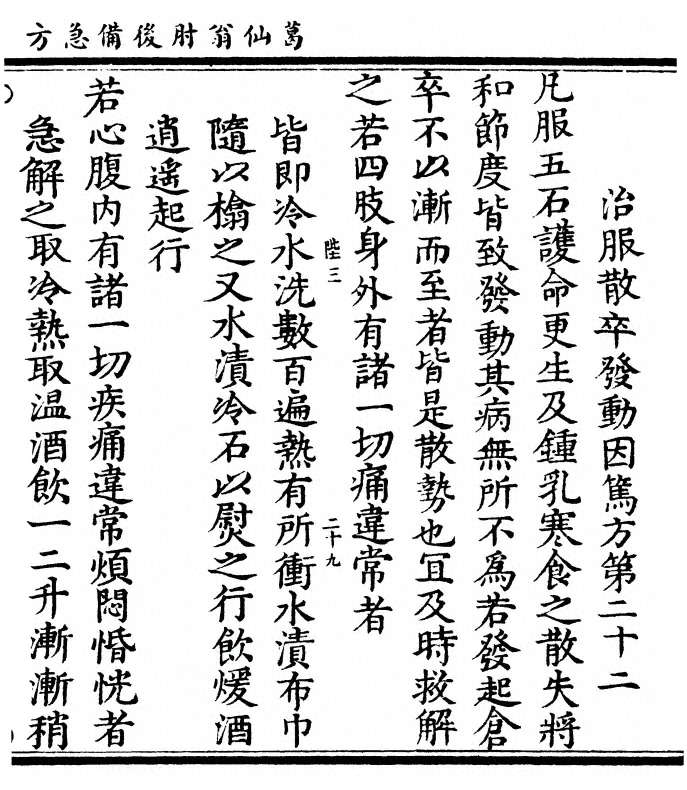 葛仙翁肘後備急方
治服散卒發動困篤方第二十二
凡服五石護命更生及鍾乳寒食之散失將
和節度皆致發動其病無所不爲若發起倉
卒不以漸而至者皆是散勢也冝及時救解
之若四肢身外有諸一切痛違常者
陛三
二十九
皆即冷水洗數百遍熱有所衝水漬布巾
隨以搨之又水漬冷石以熨之行飲煖酒
逍遥起行
若心腹内有諸一切疾痛違常煩悶惛恍者
急解之取冷熱取温酒飲一二升漸漸稍